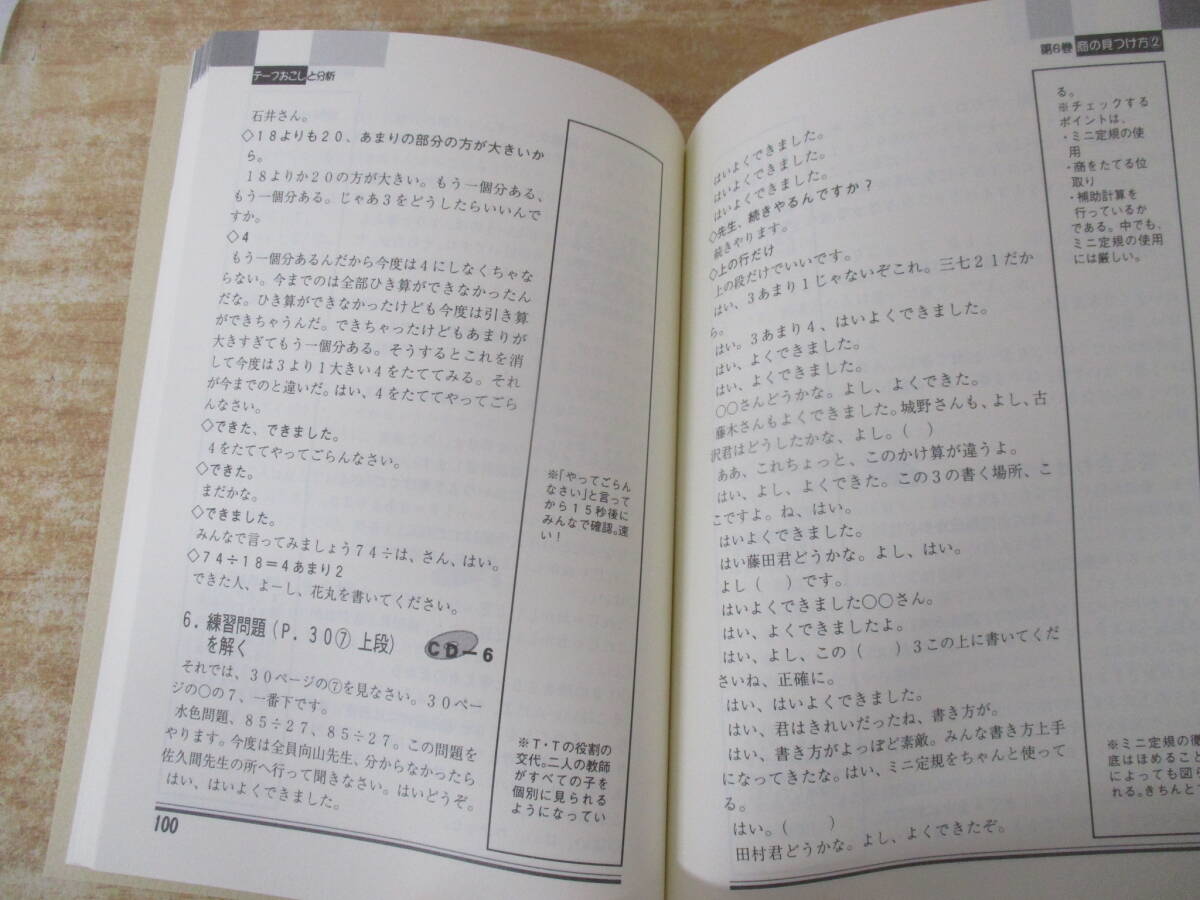 テープおこしと分析
石井さん。
◇18よりも20、あまりの部分の方が大きいか
ら。
18よりか20の方が大きい。もう一個分ある、
もう一個分ある。じゃあ3をどうしたらいいんで
すか。
◇4
もう一個分あるんだから今度は4にしなくちゃな
らない。今までのは全部ひき算ができなかったん
だな。ひき算ができなかったけども今度は引き算
ができちゃうんだ。できちゃったけどもあまりが
大きすぎてもう一個分ある。そうするとこれを消
して今度は3より1大きい4をたててみる。それ
が今までのと違いだ。はい、4をたててやってごら
んなさい。
◇できた、できました。
4をたててやってごらんなさい。
◇できた。
まだかな。
◇できました。
みんなで言ってみましょう74÷は、さん、はい。
◇74÷18=4あまり2
できた人、よーし、花丸を書いてください。
6. 練習問題(P.30⑦上段)
を解く
CD-6
それでは、30ページの⑦を見なさい。30ペー
ジの○の7、一番下です。
水色問題、85÷27、85÷27。この問題を
やります。今度は全員向山先生、分からなかったら
佐久間先生の所へ行って聞きなさい。はいどうぞ。
はい、はいよくできました。
※「やってごらん
なさい」と言って
から15秒後に
みんなで確認。速
い!
※T・Tの役割の
交代。二人の教師
がすべての子を
個別に見られる
ようになってい
100
第6巻 商の見つけ方②
はいよくできました。
はいよくできました。
はいよくできました。
◇先生、続きやるんですか?
続きやります。
◇上の行だけ
上の段だけでいいです。
はい、3あまり1じゃないぞこれ。三七21だか
ら。
はい。3あまり4、はいよくできました。
はい、よくできました。
はい、よくできました。
○○さんどうかな。よし、よくできた。
藤木さんもよくできました。城野さんも、よし、古
沢君はどうしたかな、よし。( )
ああ、これちょっと、このかけ算が違うよ。
はい、よし、よくできた。この3の書く場所、こ
こですよ。ね、はい。
はいよくできました。
はい藤田君どうかな。よし、はい。
よし( )です。
はいよくできました○○さん。
はい、よくできましたよ。
はい、よし、この( )3この上に書いてくだ
さいね、正確に。
はい、はいよくできました。
はい、君はきれいだったね、書き方が。
はい、書き方がよっぽど素敵。みんな書き方上手
になってきたな。はい、ミニ定規をちゃんと使って
る。
はい。( )
田村君どうかな。よし、よくできたぞ。
る。
※チェックする
ポイントは、
・ミニ定規の使
用
・商をたてる位
取り
・補助計算を
行っているか
である。中でも、
ミニ定規の使用
には厳しい。
※ミニ定規の徹
底はほめること
によっても図ら
れる。きちんと